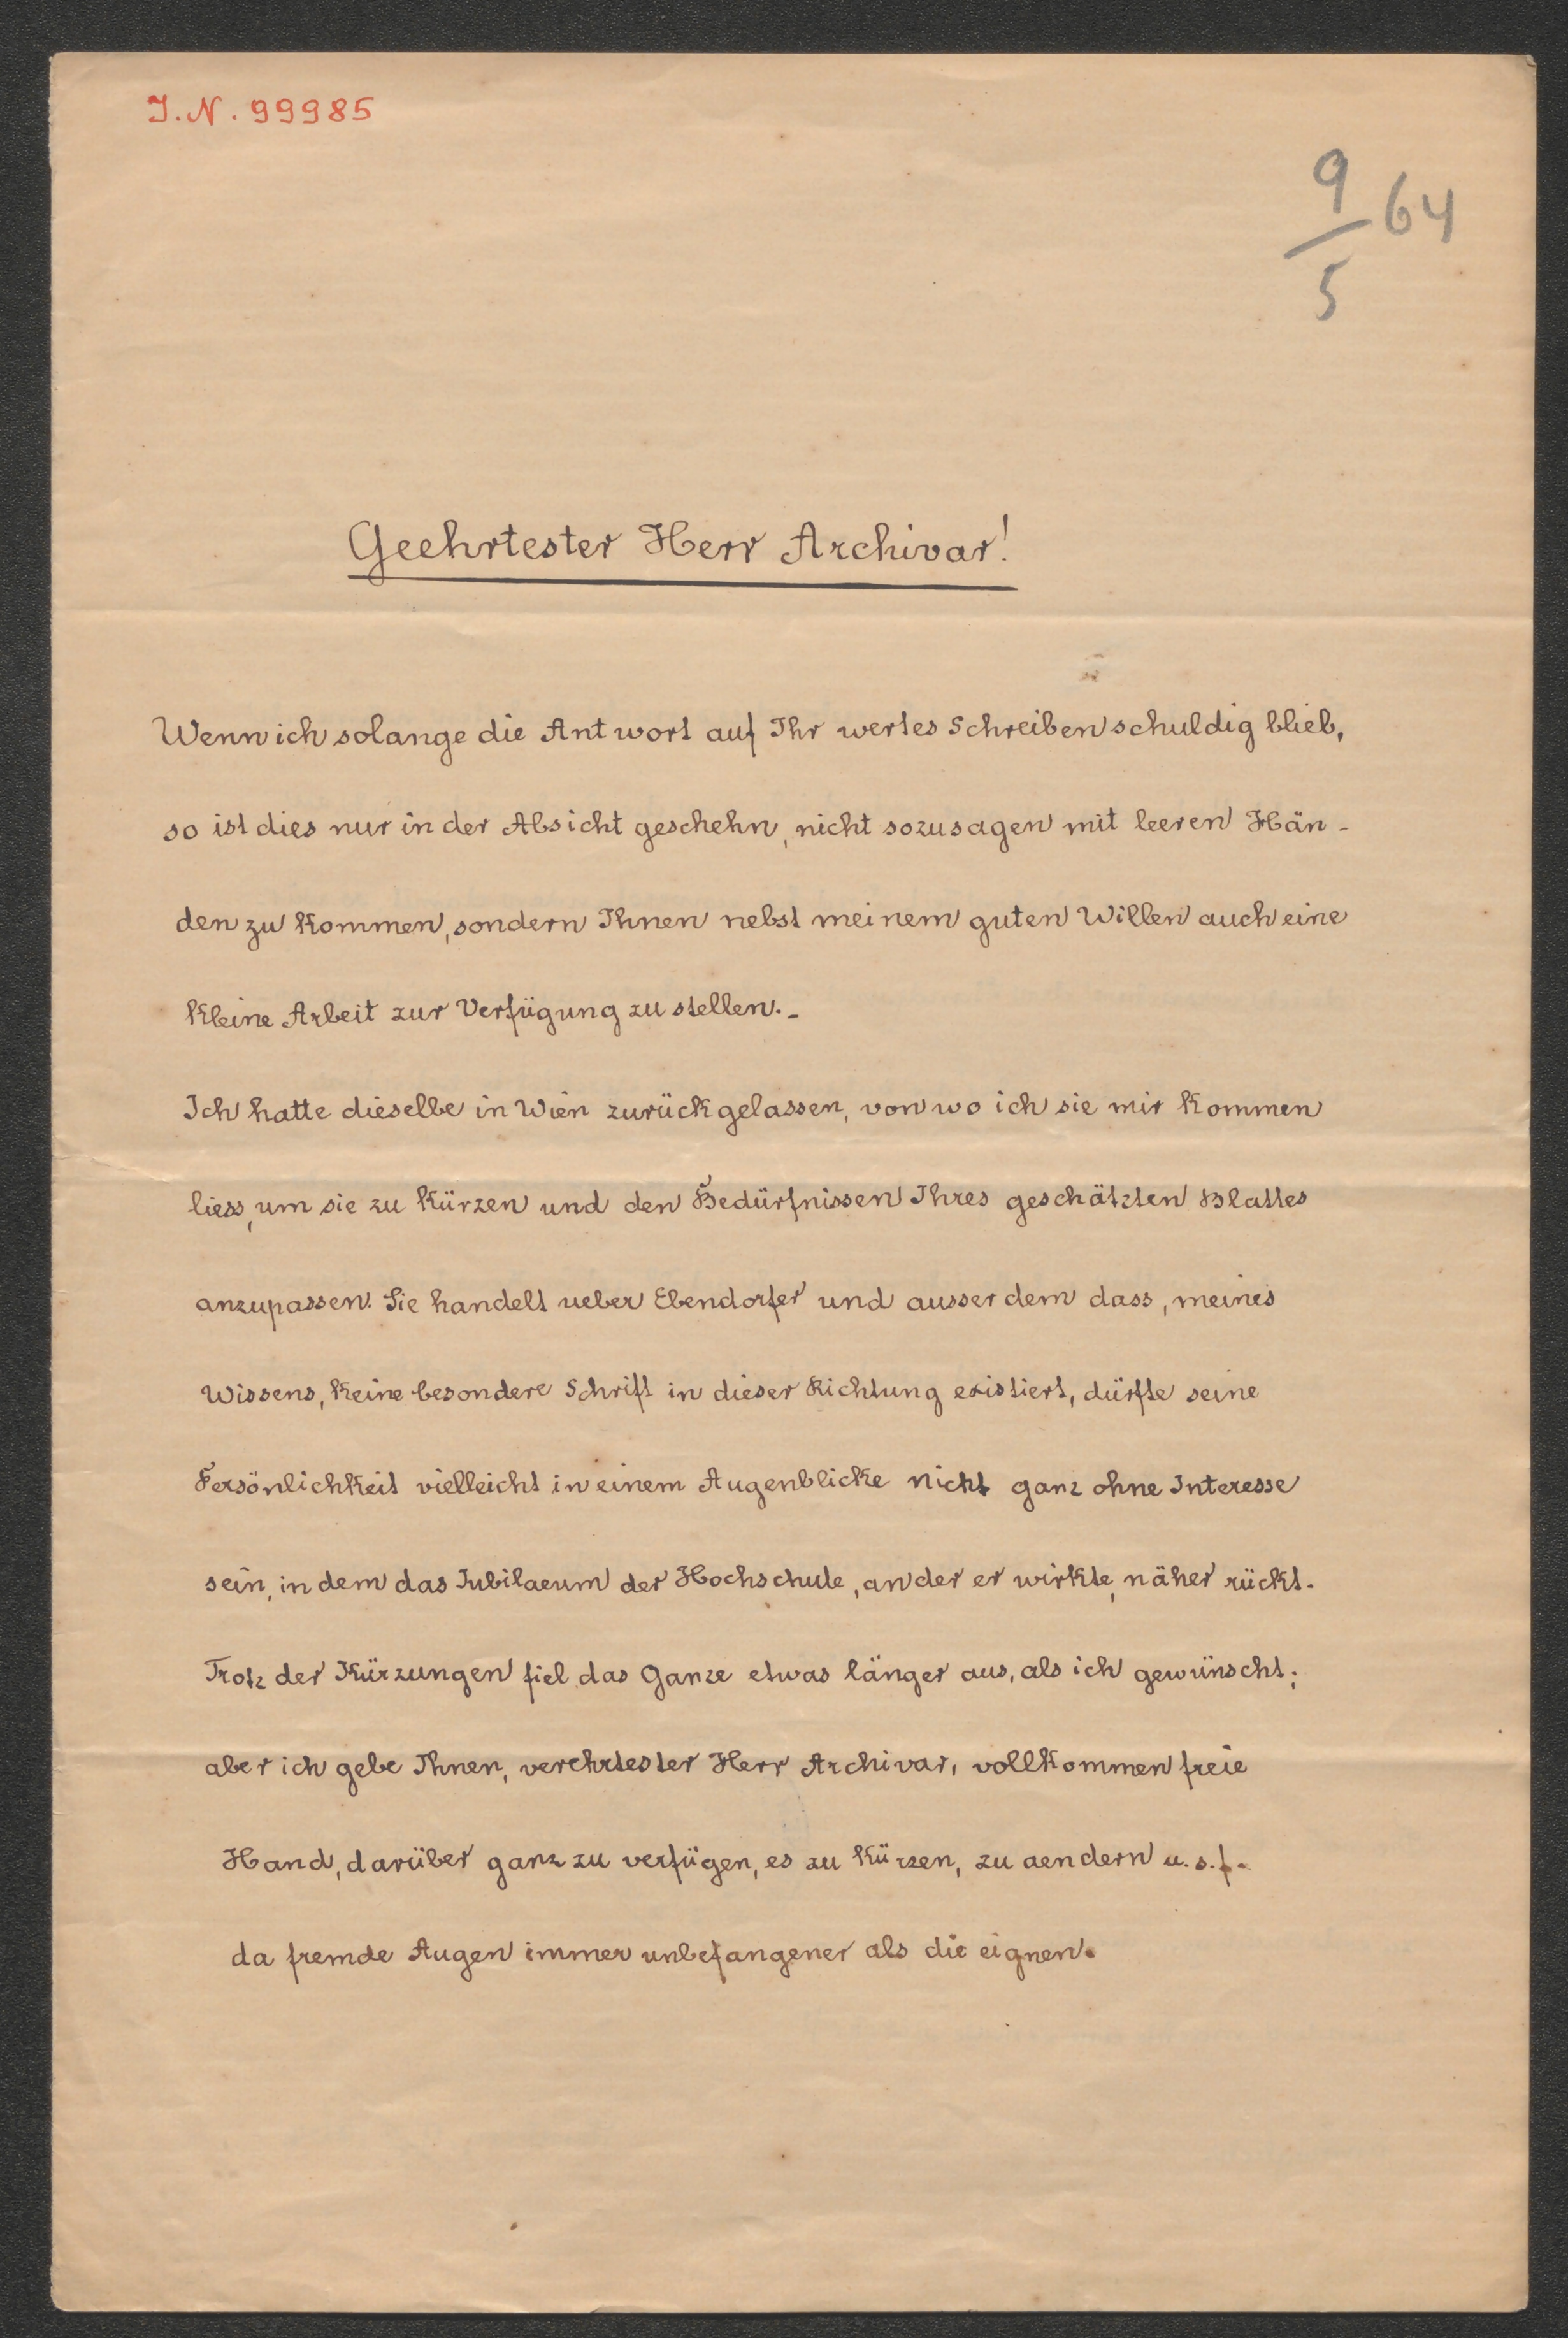 J.N. 99985
9/5 64
Geehrtester Herr Archivar!
Wenn ich solange die Antwort auf Ihr wertes Schreiben schuldig blieb,
so ist dies nur in der Absicht geschehn, nicht sozusagen mit leeren Hän-
den zu kommen, sondern Ihnen nebst meinem guten Willen auch eine
kleine Arbeit zur Verfügung zu stellen.-
Ich hatte dieselbe in Wien zurückgelassen, von wo ich sie mir kommen
liess, um sie zu kürzen und den Bedürfnissen Ihres geschätzten Blattes
anzupassen. Sie handelt ueber Ebendorfer und ausser dem dass, meines
Wissens, keine besondere Schrift in dieser Richtung existiert, dürfte seine
Persönlichkeit vielleicht in einem Augenblicke nicht ganz ohne Interesse
sein, in dem das Jubilaeum der Hochschule, an der er wirkte, näher rückt.
Trotz der Kürzungen fiel das Ganze etwas länger aus, als ich gewünscht;
aber ich gebe Ihnen, verehrtester Herr Archivar, vollkommen freie
Hand, darüber ganz zu verfügen, es zu kürzen, zu aendern u.s.f.
da fremde Augen immer unbefangener als die eignen.